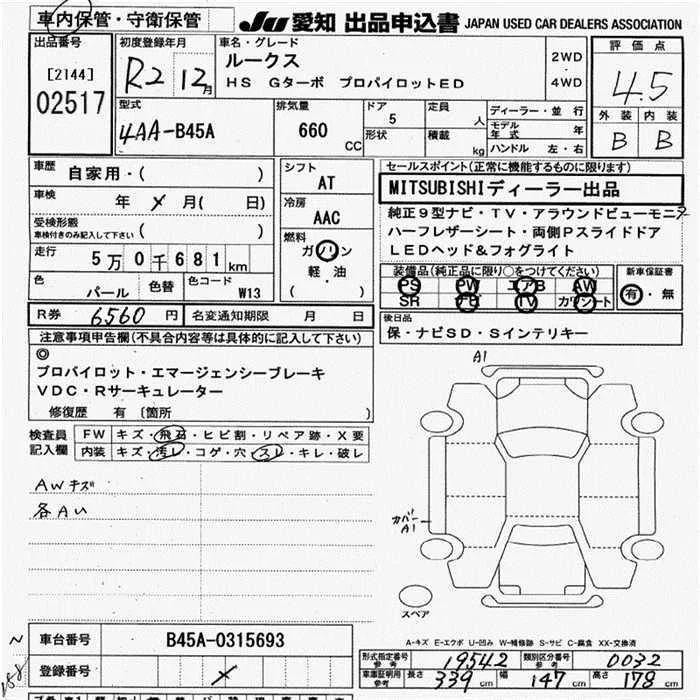 車内保管・守衛保管
JU 愛知 出品申込書 JAPAN USED CAR DEALERS ASSOCIATION
出品番号
[2144]
02517
初度登録年月
R2 12月
車名・グレード
ルークス
HS Gターボ プロパイロットED
2WD
・
4WD
評価点
4.5
外装 内装
B B
型式
4AA-B45A
排気量
660
CC
ドア
5
形状
定員
人
積載
kg
ディーラー・並行
モデル年式 年
ハンドル 左・右
車歴
自家用・( )
車検
年 メ 月( 日)
受検形態
車検付きのみ記入して下さい ( )
走行
5万0千681km
色
パール
色替
色コード
W13
シフト
AT
冷房
AAC
燃料
ガソリン
軽・油
( )
セールスポイント(正常に機能するものに限ります)
MITSUBISHIディーラー出品
純正9型ナビ・TV・アラウンドビューモニタ
ハーフレザーシート・両側Pスライドドア
LEDヘッド&フォグライト
装備品(純正品に限り○をつけてください)
PS PW エアB AW
SR ナビ TV カワシート
新車保証書
有・無
R券 6560 円
名変通知期限 月 日
後日品
保・ナビSD・Sインテリキー
注意事項申告欄(不具合内容等は具体的に記入して下さい)
◎
プロパイロット・エマージェンシーブレーキ
VDC・Rサーキュレーター
修復歴 有 〔箇所 〕
検査員
記入欄
FW キズ・飛石・ヒビ割・リペア跡・X要
内装 キズ・汚レ・コゲ・穴・スレ・キレ・破レ
AWキズ
各Aい
A1
カバー
A1
スペア
A-キズ E-エクボ U-凹み W-補修跡 S-サビ C-腐食 XX-交換済
車台番号
B45A-0315693
登録番号
メ
形式指定番号
参考
19542
類別区分番号
参考
0032
車庫証明用
参考
長さ 339 cm
幅 147 cm
高さ 178 cm